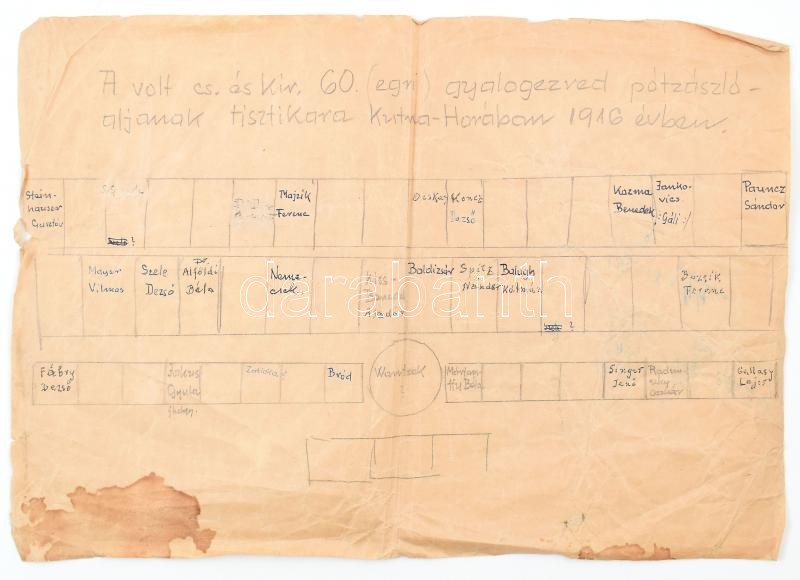 A volt cs. és kir. 60. (egri) gyalogezred pótzászló-
aljának tisztikara Kutna-Horában 1916 évben.
Stein-
hauser
Gusztáv
?
Majzik
Ferenc
Koncz
Dezső
Kozma
Benedek
Janko-
vics
/: Gáli :/
Pauncz
Sándor
Mayer
Vilmos
Szele
Dezső
Dr.
Alföldi
Béla
Neme-
csek
Kiss
Aladár
Boldizsár
Spitz
Nándor
Balogh
Kálmán
?
Bozsik
Ferenc
Fábry
Dezső
Gyula
Bród
?
Béla
Singer
Jenő
Gallasy
Lajos
darabanth